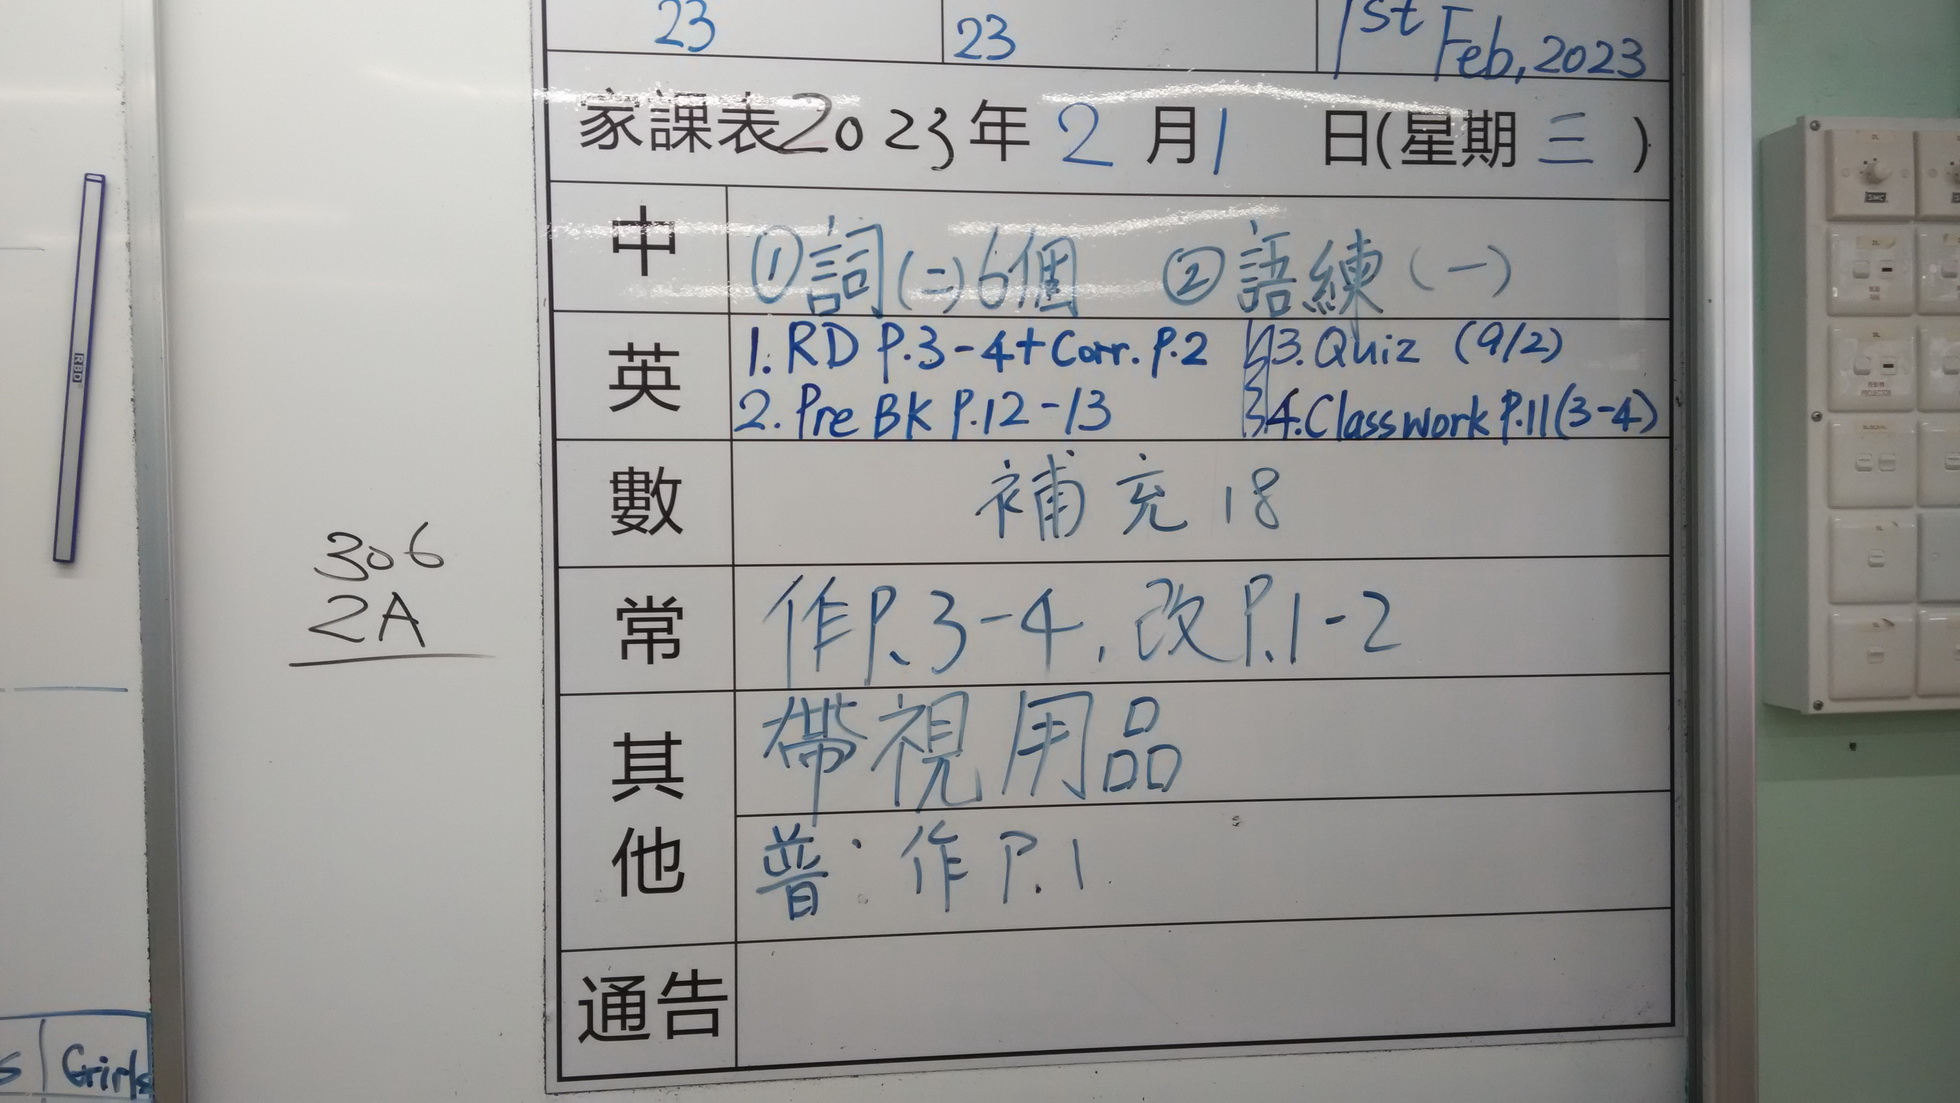 23 23 1st Feb, 2023
家課表2023年2月1日(星期三)
中 ①詞(二)6個 ②語練(一)
英 1. RD P.3-4+Corr. P.2 3. Quiz (9/2)
2. Pre BK P.12-13 4. Classwork P.11(3-4)
數 補充18
常 作P.3-4, 改P.1-2
其他 帶視用品
普：作P.1
通告
306
2A
RBD
s Girls
PROJECTOR